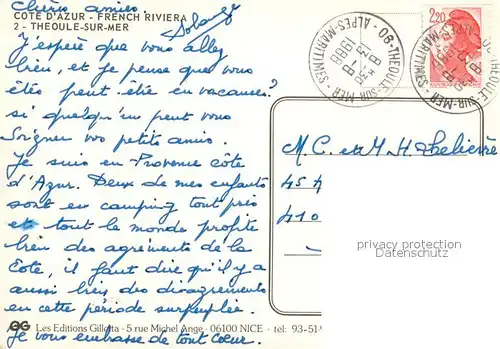 Chers amies.
COTE D'AZUR - FRENCH RIVIERA
2 - THEOULE-SUR-MER
J'espère que vous allez
bien, et je pense que vous
êtes peut être en vacances?
si quelqu'un peut vous
soigner vos petits amis.
Je suis en Provence côte
d'Azur. Deux de mes enfants
sont en camping tout près
et tout le monde profite
bien des agréments de la
Cote, il faut dire qu'il y a
aussi bien des désagréments
en cette période surpeuplée.
Les Editions Gilletta - 5 rue Michel Ange - 06100 NICE - tel: 93-51
Je vous embrasse de tout coeur.
06-THEOULE-SUR-MER
ALPES-MARITIMES
1988
2,20
M. C. et M. H
45
410
privacy protection
Datenschutz